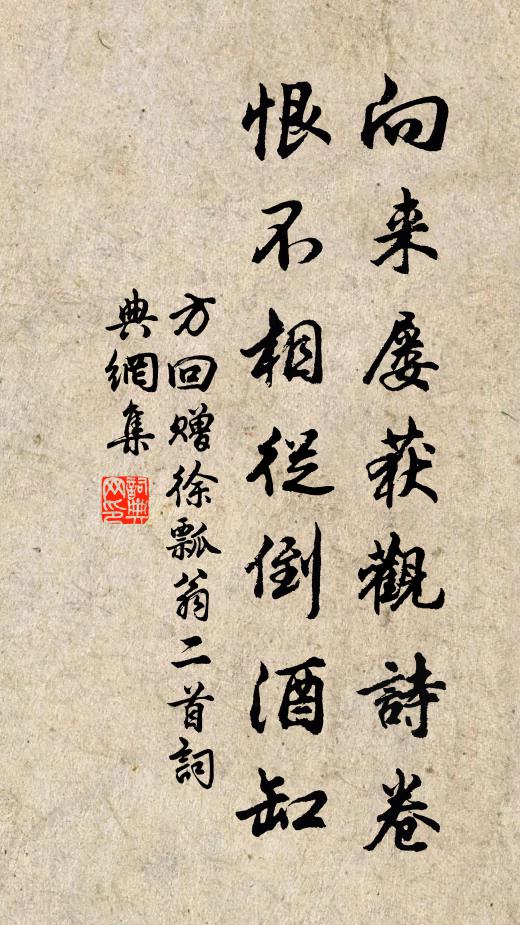 向来屡获觀詩卷
恨不相從倒酒缸
方回赠徐瓢翁二首詞
典網集
詞典
网印